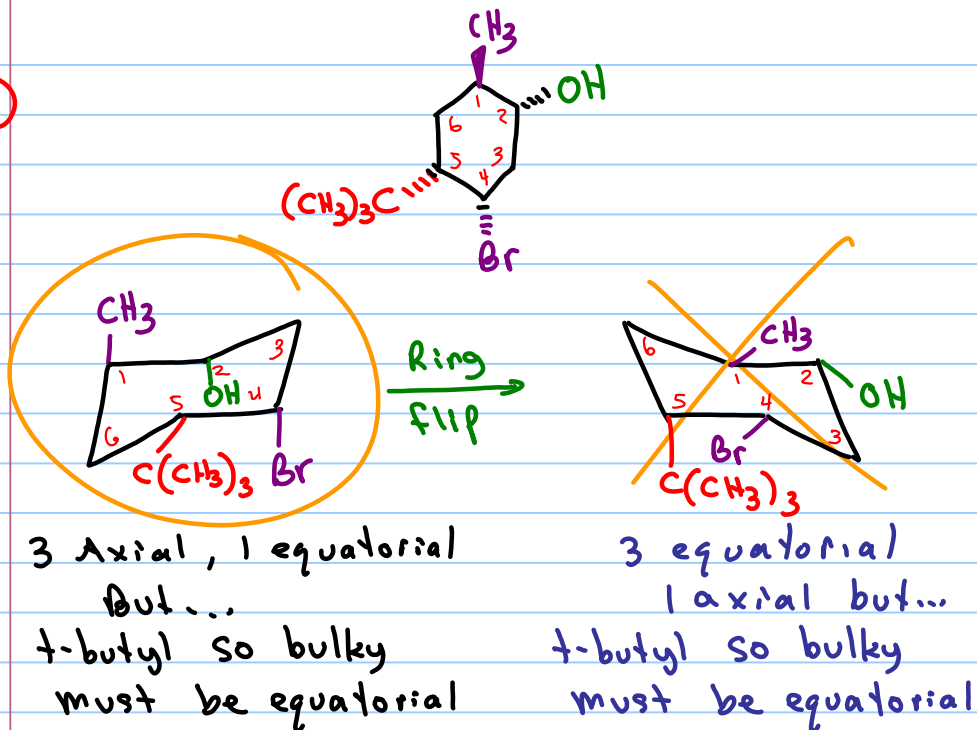 CH3
OH
1
6 2
5 3
4
(CH3)3C
Br
CH3
1 2 3
OH 4
5
6
C(CH3)3 Br
Ring
flip
6 CH3
1 2
5 4 OH
Br 3
C(CH3)3
3 Axial, 1 equatorial
But...
t-butyl so bulky
must be equatorial
3 equatorial
1 axial but...
t-butyl so bulky
must be equatorial